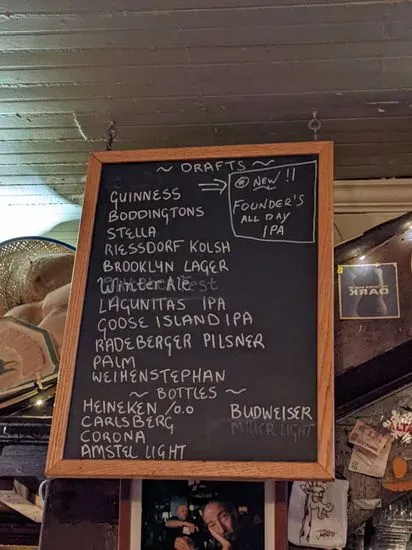 ~ DRAFTS ~
GUINNESS
BODDINGTONS
STELLA
RIESSDORF KOLSH
BROOKLYN LAGER
WINTER ALE
LAGUNITAS IPA
GOOSE ISLAND IPA
RADEBERGER PILSNER
PALM
WEIHENSTEPHAN
® NEW !!
FOUNDER'S
ALL DAY
IPA
~ BOTTLES ~
HEINEKEN /0.0
CARLSBERG
CORONA
AMSTEL LIGHT
BUDWEISER
MILLER LIGHT
DARK